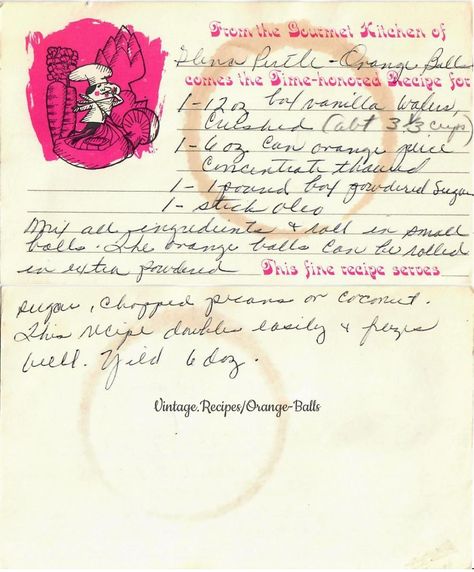 From the Gourmet Kitchen of
Glena Pirtle - Orange Balls
comes the Time-honored Recipe for
1 - 12 oz box vanilla wafers,
crushed (abt 3 1/3 cups)
1 - 6 oz can orange juice
concentrate thawed
1 - 1 pound box powdered sugar
1 - stick oleo
Mix all ingredients & roll in small
balls. The orange balls can be rolled
in extra powdered
This fine recipe serves
sugar, chopped pecans or coconut.
This recipe doubles easily & frezes
well. Yild 6 doz.
Vintage.Recipes/Orange-Balls